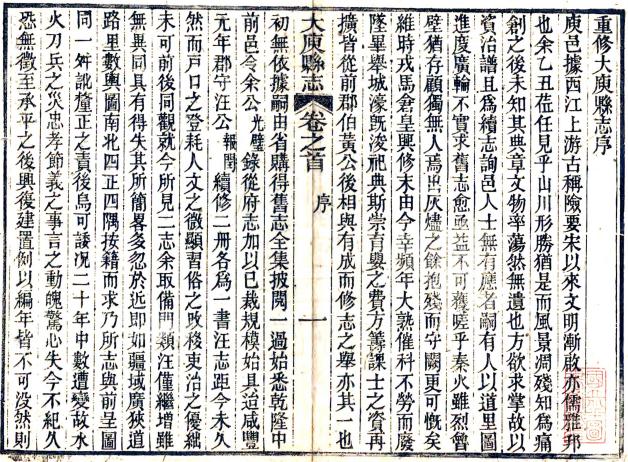 重修大庾縣志序
庾邑據西江上游古稱險要宋以來文明漸啟亦儒雅邦
也余乙丑莅任見乎山川形勝猶是而風景凋殘知為痛
創之後未知其典章文物率蕩然無遺也方欲求掌故以
資治譜且為續志詢邑人士無有應者嗣有人以道里圖
進度廣輪不實求舊志愈亟益不可獲嗟乎秦火雖烈曾
壁猶存顧獨無人焉出灰燼之餘抱殘而守闕更可慨矣
維時戎馬倉皇興修未由今幸頻年大熟催科不勞而廢
墜畢舉城濠既浚祀典斯崇育嬰之費方籌課士之資再
擴皆從前郡伯黃公後相與有成而修志之舉亦其一也
大庾縣志 卷之首 序 一
初無依據嗣由省購得舊志全集披閱一過始悉乾隆中
前邑令余公光璧錄從府志加以已裁規模始具迨咸豐
元年郡守汪公報閏續修二冊各為一書汪志距今未久
然而戶口之登耗人文之微顯習俗之改移吏治之優絀
未可前後同觀就今所見二志余取備門類汪僅繼增雖
無異同具有得失其所簡畧多忽於近即如疆域廣狹道
路里數輿圖南北四正四隅按籍而求乃所志與前呈圖
同一舛訛釐正之責後烏可諉況二十年中數遭變故水
火刀兵之災忠孝節義之事言之動魄驚心失今不紀久
恐無徵至承平之後興復建置例以編年皆不可沒然則